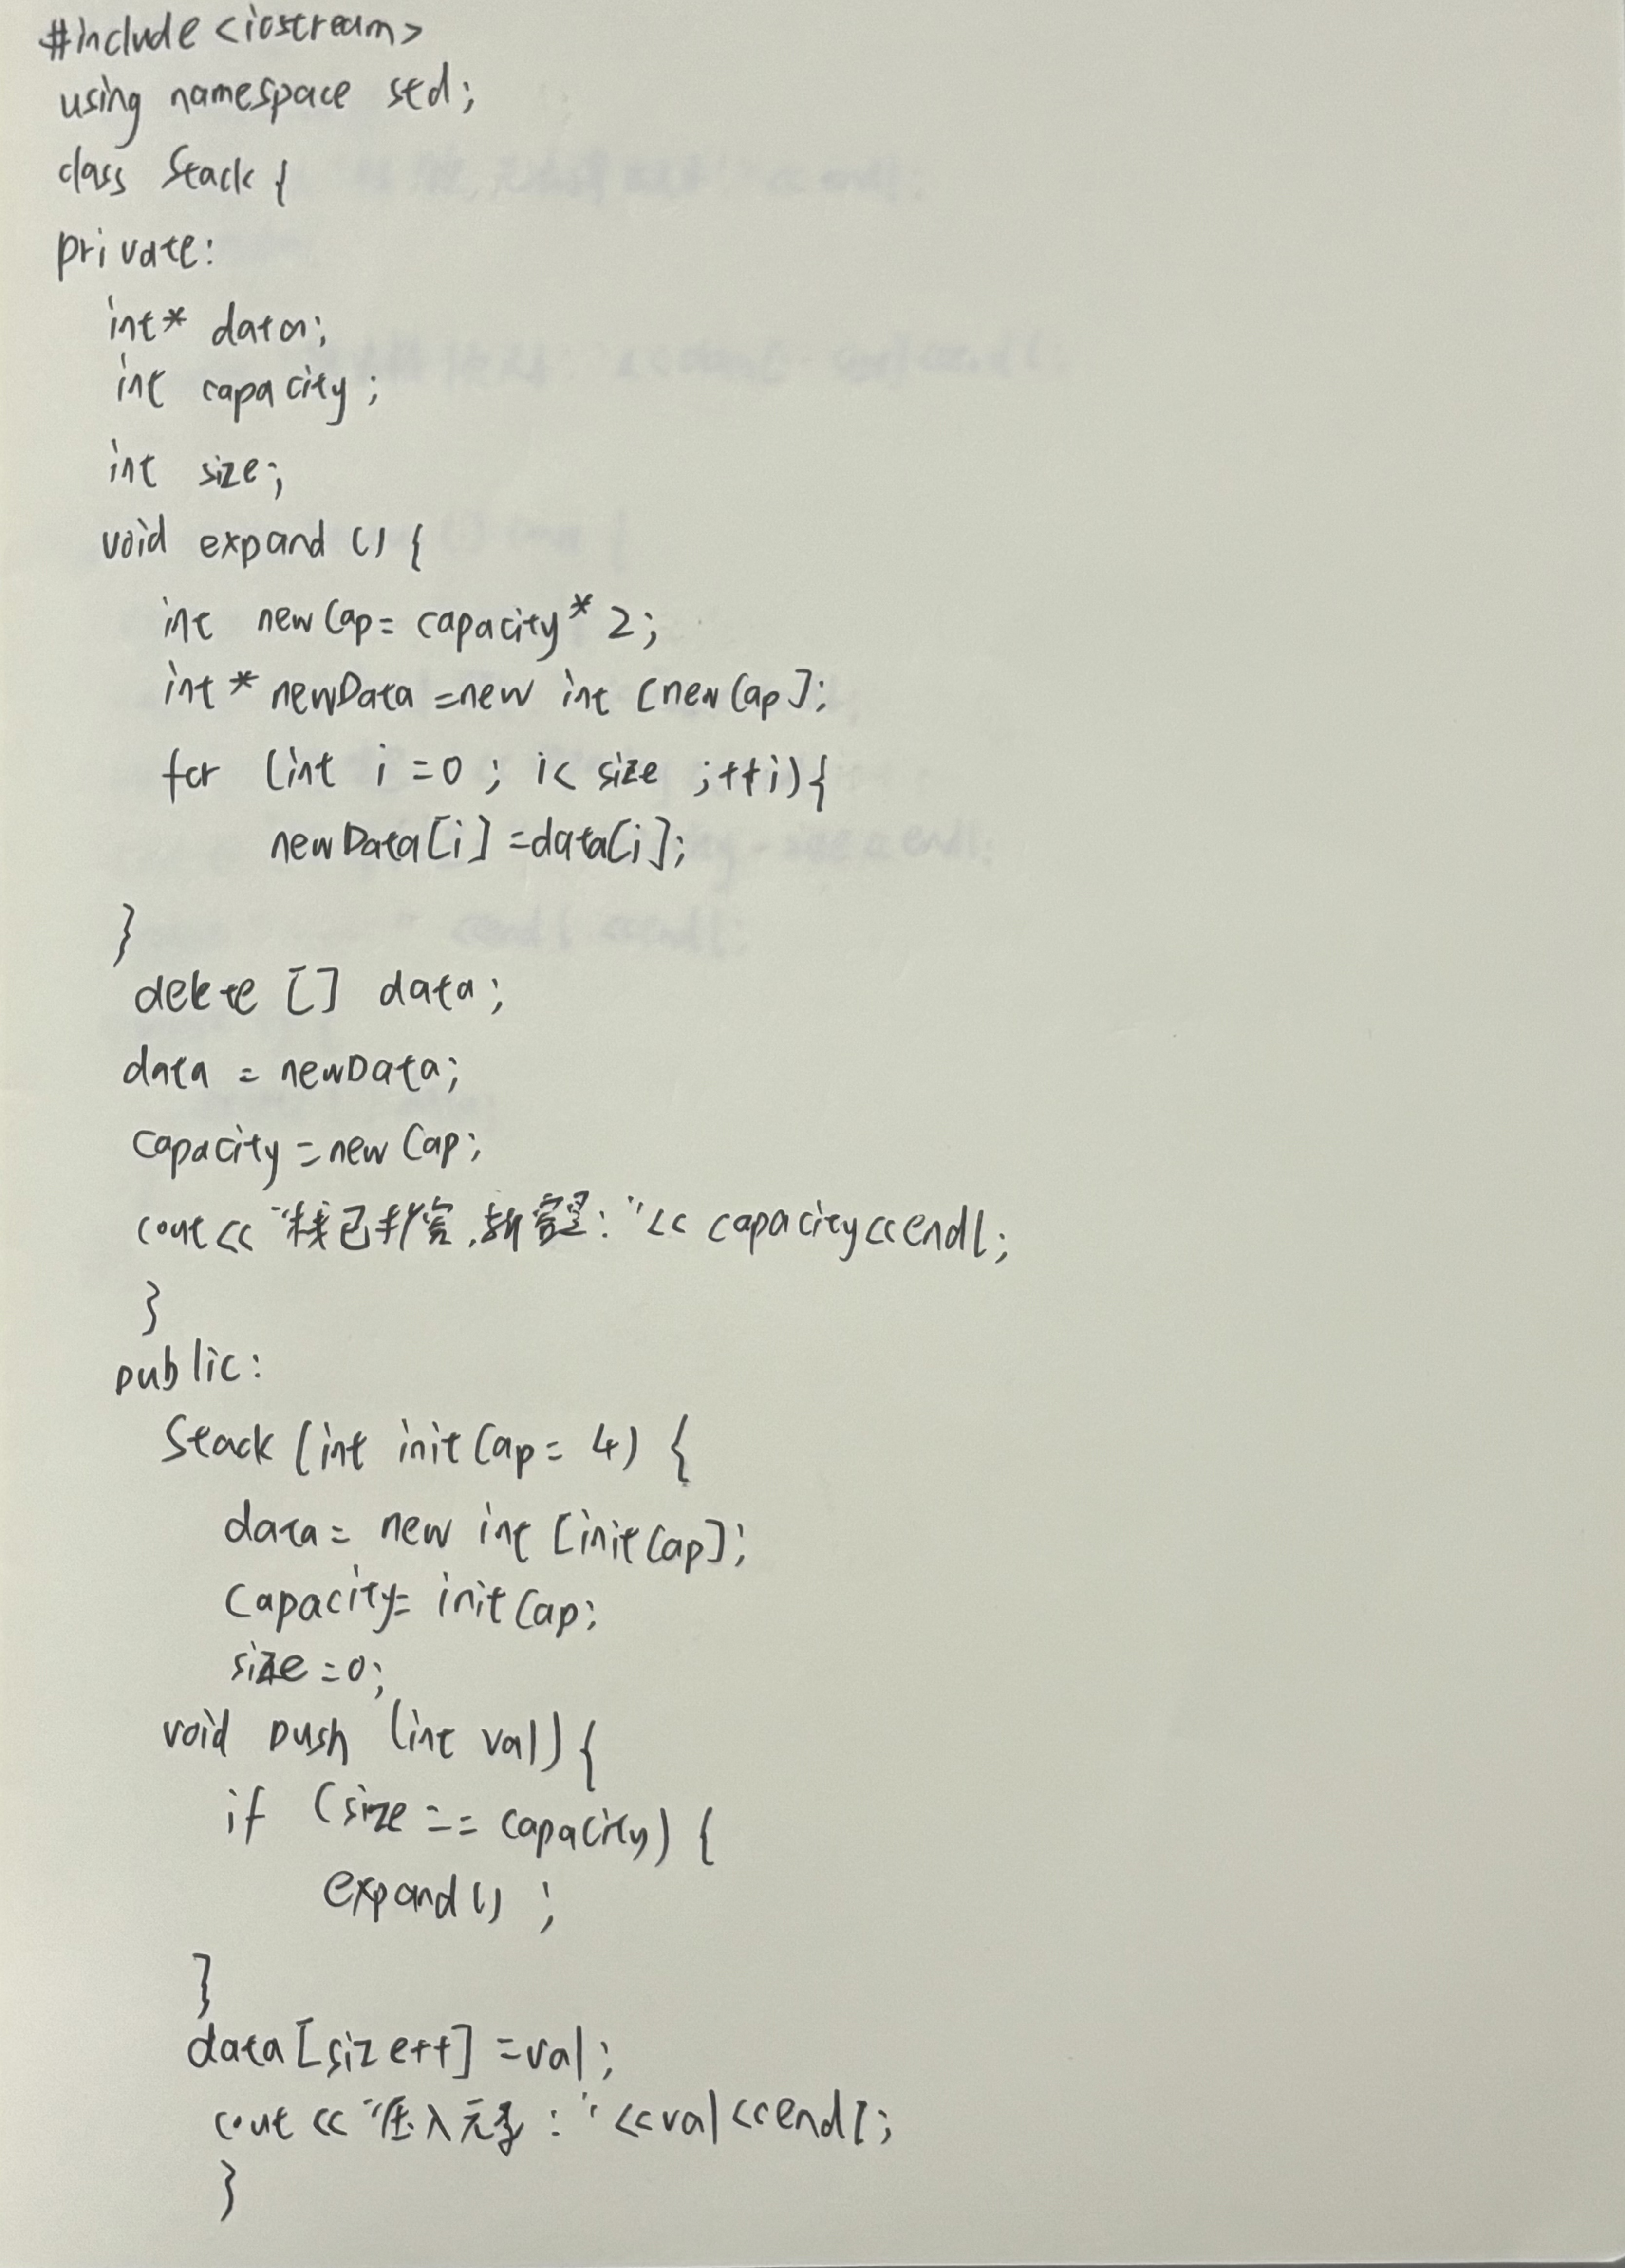 #include <iostream>
using namespace std;
class Stack {
private:
int* data;
int capacity;
int size;
void expand () {
int newCap = capacity * 2;
int* newData = new int [newCap];
for (int i = 0; i < size; ++i) {
newData[i] = data[i];
}
delete [] data;
data = newData;
capacity = newCap;
cout << "栈已扩容,新容量: " << capacity << endl;
}
public:
Stack (int initCap = 4) {
data = new int [initCap];
capacity = initCap;
size = 0;
void push (int val) {
if (size == capacity) {
expand();
}
data[size++] = val;
cout << "压入元素: " << val << endl;
}